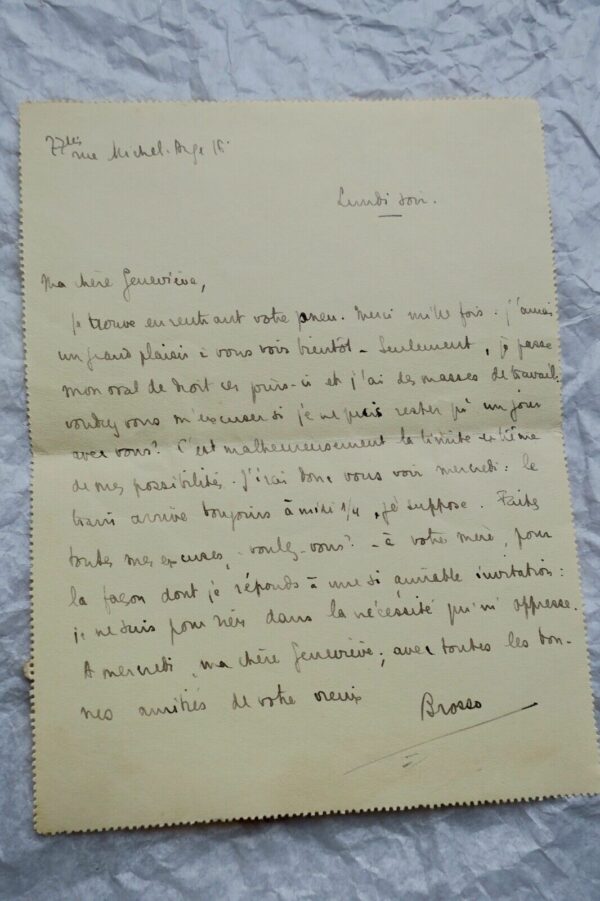 77bis
rue Michel-Ange 16e
Lundi soir.
Ma chère Geneviève,
Je trouve en rentrant votre pneu. Merci mille fois. j'aurais
un grand plaisir à vous voir bientôt - Seulement, je passe
mon oral de droit ces jours-ci et j'ai des masses de travail.
voudrez vous m'excuser si je ne puis rester qu'un jour
avec vous? C'est malheureusement la limite extrême
de mes possibilités. J'irai donc vous voir mercredi : le
train arrive toujours à midi 1/4, je suppose. Faites
toutes mes excuses, - voulez-vous? - à votre mère, pour
la façon dont je réponds à une si aimable invitation :
je ne suis pour rien dans la nécessité qui m'oppresse.
A mercredi, ma chère Geneviève, avec toutes les bon-
nes amitiés de votre vieux
Brosso